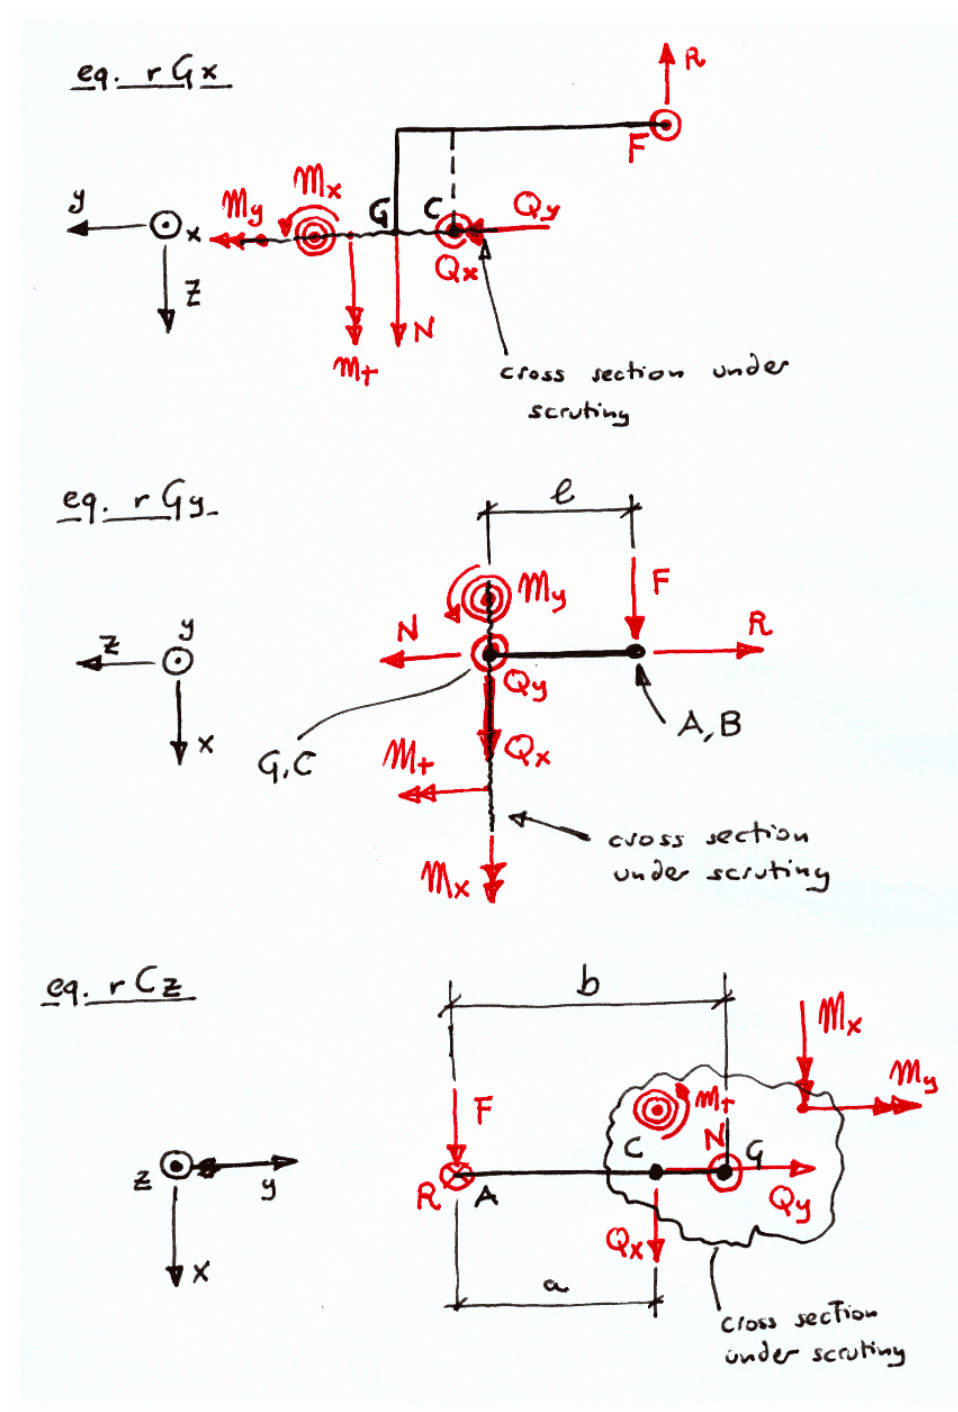 eq. r Gx
R
F
y
x
z
My
Mx
G
C
Qy
Qx
N
Mt
cross section under
scruting
eq. r Gy
l
My
F
N
R
z
y
x
Qy
A,B
G,C
Qx
Mt
cross section
under scruting
Mx
eq. r Cz
b
Mx
My
F
Mt
C
N
G
z
y
R
A
Qy
Qx
x
a
cross section
under scruting